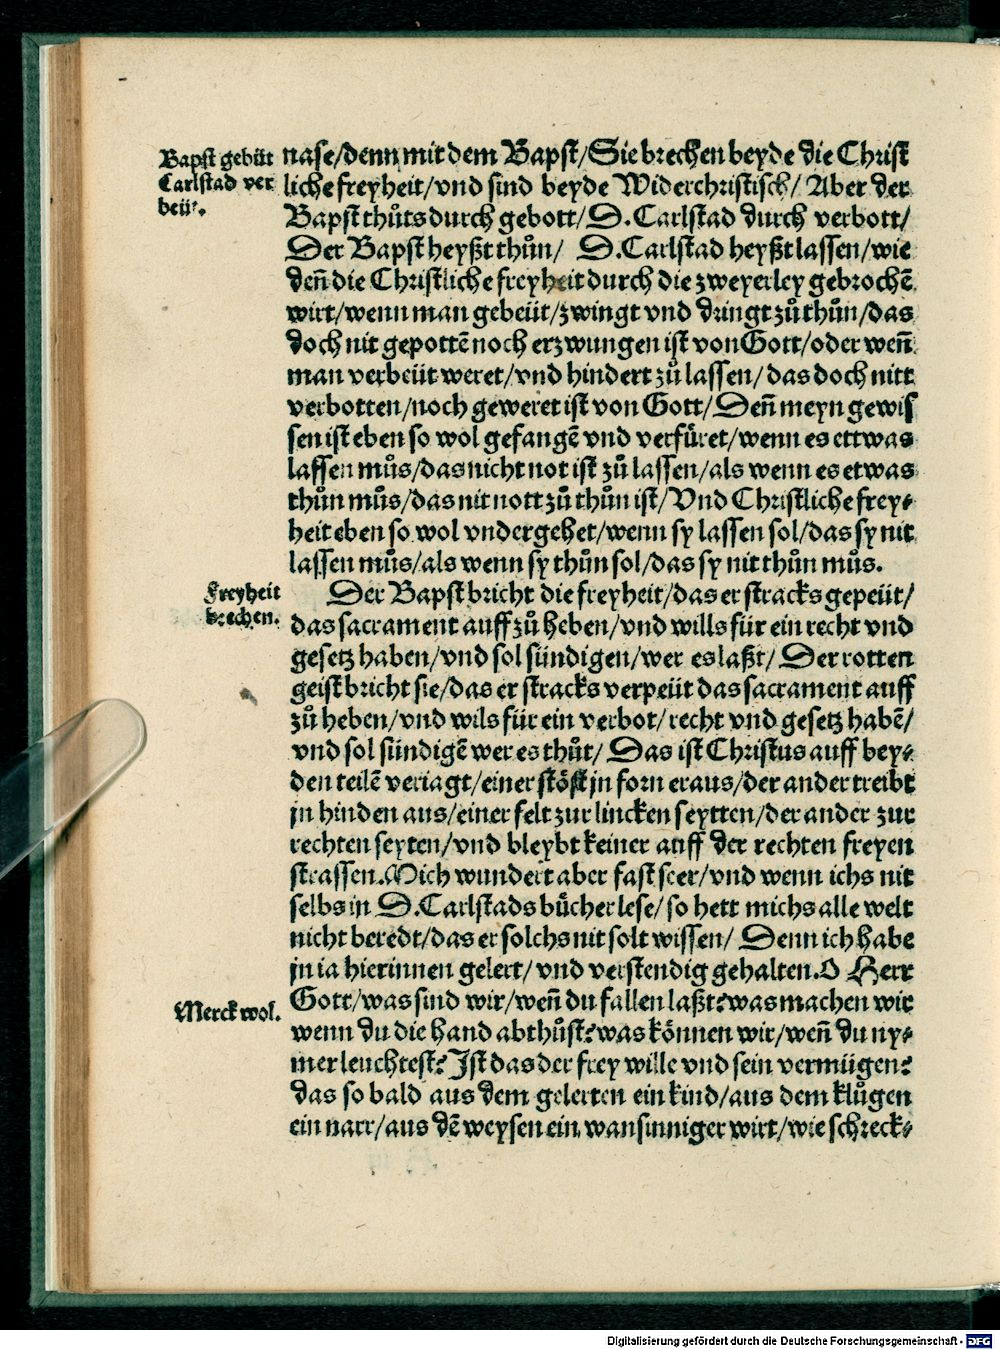 Bapst gebüt
Carlstad ver
beüt.
nase/denn mit dem Bapst/Sie brechen beyde die Christ
liche freyheit/vnd sind beyde Widerchristisch/ Aber der
Bapst thůts durch gebott/D. Carlstad durch verbott/
Der Bapst heyßt thůn/ D. Carlstad heyßt lassen/wie
deñ die Christliche freyheit durch die zweyerley gebrochē
wirt/wenn man gebeüt/zwingt vnd dringt zů thůn/das
doch nit gepottē noch erzwungen ist von Gott/oder weñ
man verbeüt weret/vnd hindert zů lassen/das doch nitt
verbotten/noch geweret ist von Gott/Deñ meyn gewis
sen ist eben so wol gefangē vnd verfüret/wenn es ettwas
lassen můs/das nicht not ist zů lassen/als wenn es etwas
thůn můs/das nit nott zů thůn ist/Vnd Christliche frey⸗
heit eben so wol vndergehet/wenn sy lassen sol/das sy nit
lassen můs/als wenn sy thůn sol/das sy nit thůn můs.
Freyheit
brechen.
Der Bapst bricht die freyheit/das er stracks gepeüt/
das sacrament auff zů heben/vnd wills für ein recht vnd
gesetz haben/vnd sol sündigen/wer es laßt/ Der rotten
geist bricht sie/das er stracks verpeüt das sacrament auff
zů heben/vnd wils für ein verbot/recht vnd gesetz habē/
vnd sol sündigē wer es thůt/ Das ist Christus auff bey⸗
den teilē veriagt/einer stößt jn forn eraus/der ander treibt
jn hinden aus/einer felt zur lincken seytten/der ander zur
rechten seyten/vnd bleybt keiner auff der rechten freyen
strassen. Mich wundert aber fast seer/vnd wenn ichs nit
selbs in D. Carlstads bücher lese/so hett michs alle welt
nicht beredt/das er solchs nit solt wissen/ Denn ich habe
jn ia hierinnen gelert/vnd verstendig gehalten. O Herr
Merck wol.
Gott/was sind wir/weñ du fallen laßt? was machen wir
wenn du die hand abthůst? was können wir/weñ du ny⸗
mer leuchtest? Ist das der frey wille vnd sein vermügen?
das so bald aus dem gelerten ein kind/aus dem klůgen
ein narr/aus dē weysen ein wansinniger wirt/wie schreck⸗
Digitalisierung gefördert durch die Deutsche Forschungsgemeinschaft - DFG